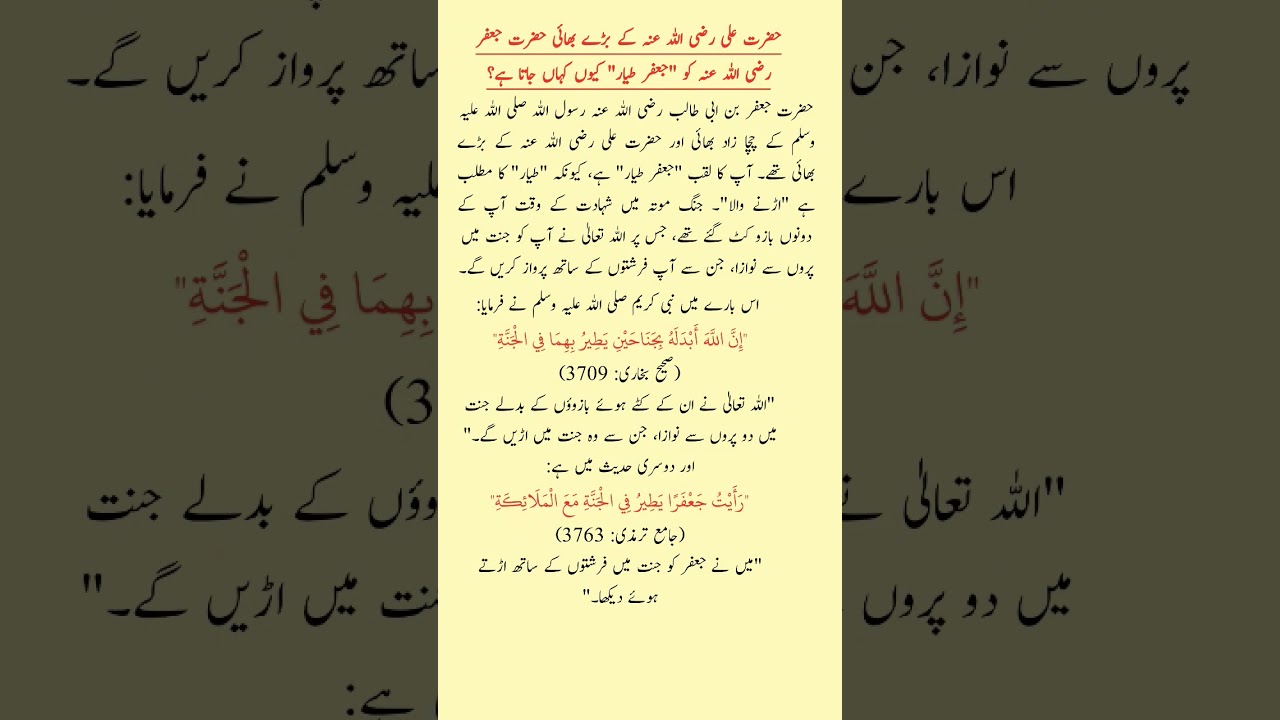 حضرت علی رضی اللہ عنہ کے بڑے بھائی حضرت جعفر
رضی اللہ عنہ کو "جعفر طیار" کیوں کہاں جاتا ہے؟
حضرت جعفر بن ابی طالب رضی اللہ عنہ رسول اللہ صلی اللہ علیہ
وسلم کے چچا زاد بھائی اور حضرت علی رضی اللہ عنہ کے بڑے
بھائی تھے۔ آپ کا لقب "جعفر طیار" ہے، کیونکہ "طیار" کا مطلب
ہے "اڑنے والا"۔ جنگ موتہ میں شہادت کے وقت آپ کے
دونوں بازو کٹ گئے تھے، جس پر اللہ تعالیٰ نے آپ کو جنت میں
پروں سے نوازا، جن سے آپ فرشتوں کے ساتھ پرواز کریں گے۔
اس بارے میں نبی کریم صلی اللہ علیہ وسلم نے فرمایا:
"إِنَّ اللَّهَ أَبْدَلَهُ بِجَنَاحَيْنِ يَطِيرُ بِهِمَا فِي الْجَنَّةِ"
(صحیح بخاری: 3709)
"اللہ تعالیٰ نے ان کے کٹے ہوئے بازوؤں کے بدلے جنت
میں دو پروں سے نوازا، جن سے وہ جنت میں اڑیں گے۔"
اور دوسری حدیث میں ہے:
"رَأَيْتُ جَعْفَرًا يَطِيرُ فِي الْجَنَّةِ مَعَ الْمَلَائِكَةِ"
(جامع ترمذی: 3763)
"میں نے جعفر کو جنت میں فرشتوں کے ساتھ اڑتے
ہوئے دیکھا۔"